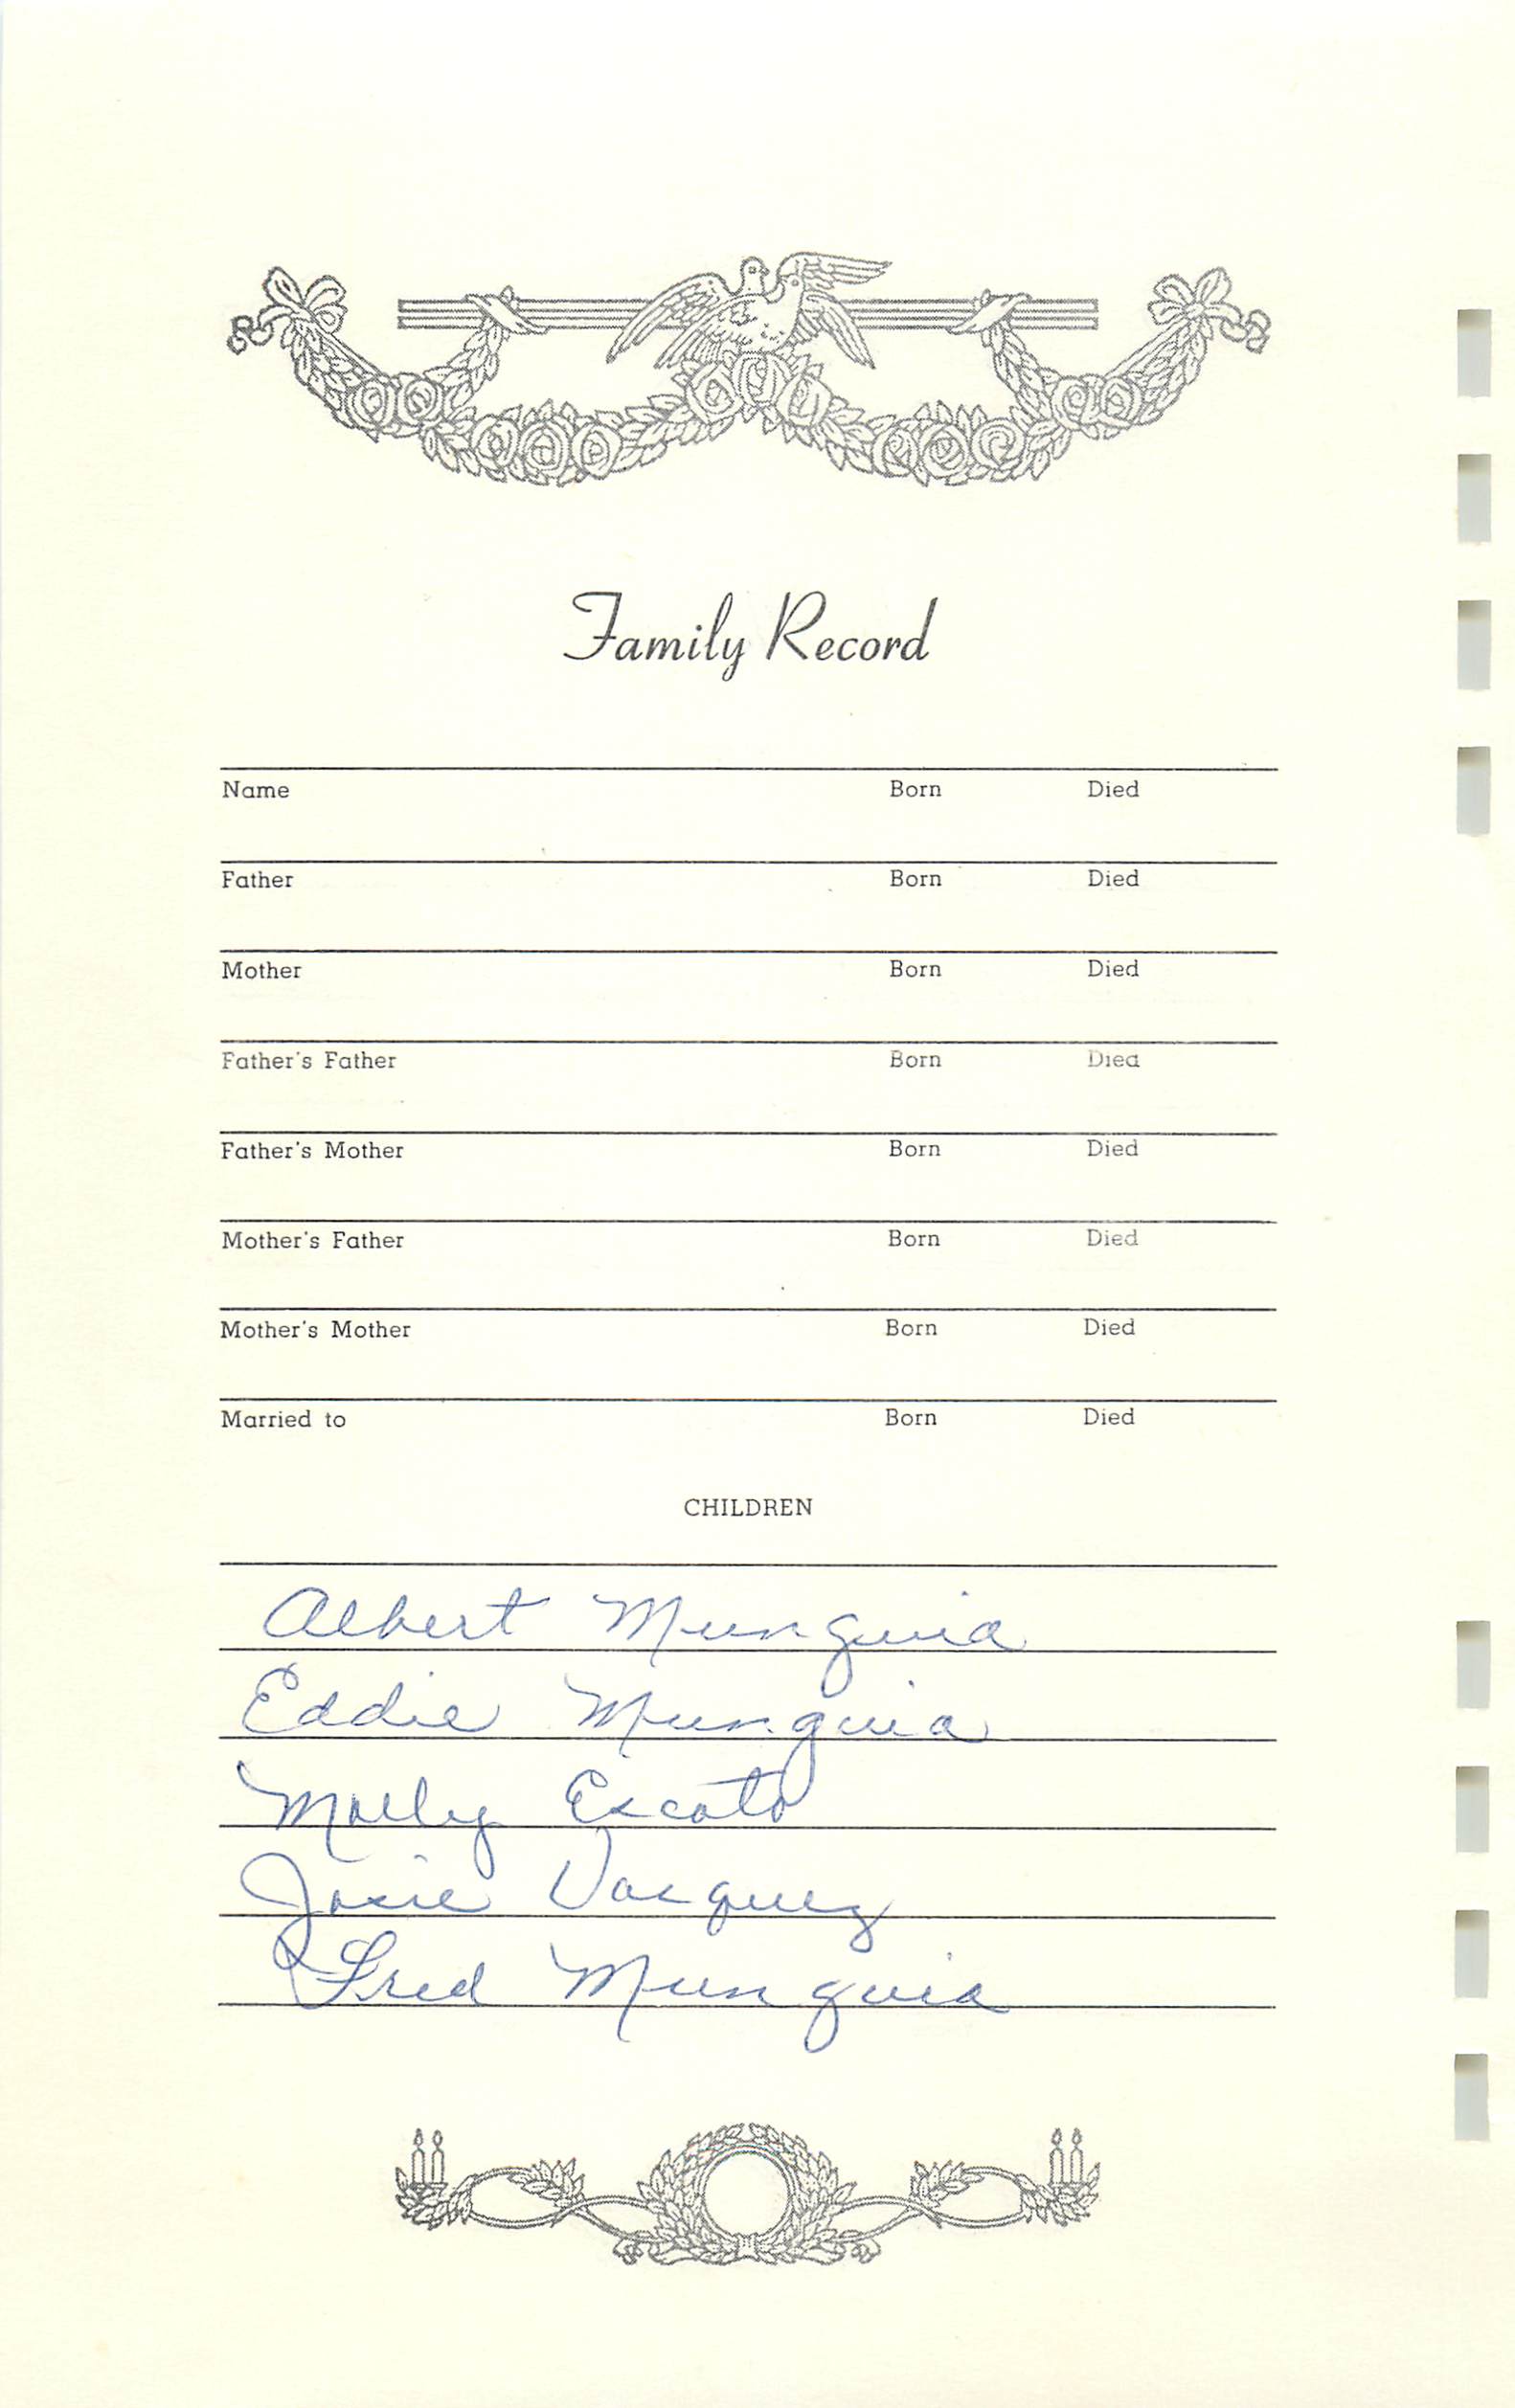 Family Record
Name Born Died
Father Born Died
Mother Born Died
Father's Father Born Died
Father's Mother Born Died
Mother's Father Born Died
Mother's Mother Born Died
Married to Born Died
CHILDREN
Albert Munguia
Eddie Munguia
Molly Escoto
Josie Vasquez
Fred Munguia